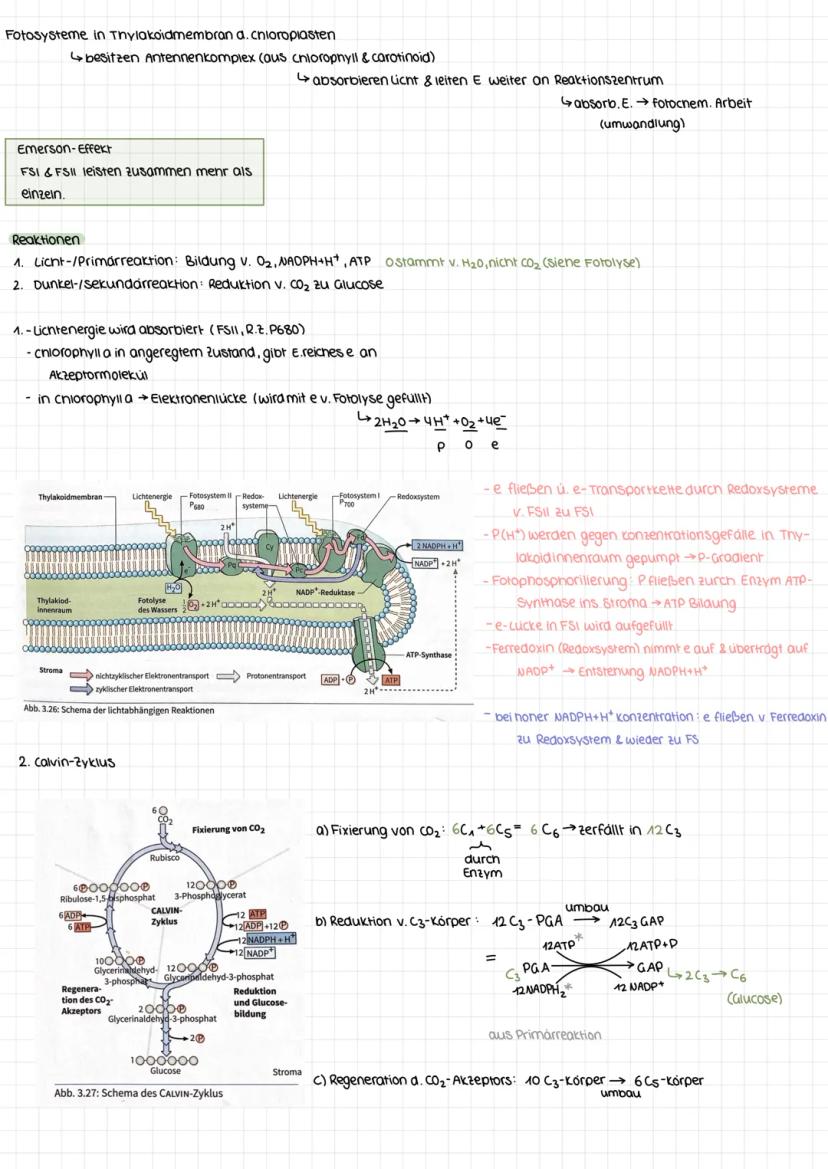 Fotosysteme in Thylakoidmembran d. Chloroplasten
↳ besitzen Antennenkomplex (aus Chlorophyll & Carotinoid)
↳ absorbieren Licht & leiten E weiter an Reaktionszentrum
↳ absorb. E. → fotochem. Arbeit
(umwandlung)
Emerson-Effekt
FSI & FSII leisten zusammen mehr als
einzeln.
Reaktionen
1. Licht-/Primärreaktion: Bildung v. O₂, NADPH+H⁺, ATP O stammt v. H₂O, nicht CO₂ (siehe Fotolyse)
2. Dunkel-/Sekundärreaktion: Reduktion v. CO₂ zu Glucose
1. - Lichtenergie wird absorbiert (FSII, R.z. P680)
- Chlorophyll a in angeregtem Zustand, gibt E.reiches e an
Akzeptormolekül
- in Chlorophyll a → Elektronenlücke (wird mit e v. Fotolyse gefüllt)
↳ 2H₂O → 4H⁺ + O₂ + 4e⁻
p O e
Thylakoidmembran
Lichtenergie
Fotosystem II
P680
Redox-
systeme
Lichtenergie
Fotosystem I
P700
Redoxsystem
2 H⁺
Cy
Fd
Pq
Pc
e⁻
2 NADPH + H⁺
NADP⁺ + 2 H⁺
H₂O
2 H⁺
NADP⁺-Reduktase
Thylakiod-
innenraum
Fotolyse
des Wassers
½ O₂ + 2 H⁺
ATP-Synthase
Stroma
nichtzyklischer Elektronentransport
Protonentransport
zyklischer Elektronentransport
ADP + P
ATP
2 H⁺
Abb. 3.26: Schema der lichtabhängigen Reaktionen
- e fließen ü. e-Transportkette durch Redoxsysteme
v. FSII zu FSI
- P(H⁺) werden gegen Konzentrationsgefälle in Thy-
lakoidinnenraum gepumpt → P-Gradient
- Fotophosphorilierung: P fließen zurch Enzym ATP-
Synthase ins Stroma → ATP Bildung
- e-Lücke in FSI wird aufgefüllt
- Ferredoxin (Redoxsystem) nimmt e auf & überträgt auf
NADP⁺ → Entstehung NADPH+H⁺
- bei hoher NADPH+H⁺ Konzentration: e fließen v Ferredoxin
zu Redoxsystem & wieder zu FS
2. Calvin-Zyklus
6
CO₂
Fixierung von CO₂
Rubisco
6
Ribulose-1,5-bisphosphat
12
3-Phosphoglycerat
6 ADP
6 ATP
CALVIN-
Zyklus
12 ATP
12 ADP + 12 P
12 NADPH + H⁺
12 NADP⁺
10
Glycerinaldehyd-
3-phosphat
12
Glycerinaldehyd-3-phosphat
Regenera-
tion des CO₂-
Akzeptors
Reduktion
und Glucose-
bildung
2
Glycerinaldehyd-3-phosphat
2 P
1
Glucose
Stroma
Abb. 3.27: Schema des CALVIN-Zyklus
a) Fixierung von CO₂: 6C₁ + 6C₅ = 6 C₆ → zerfällt in 12 C₃
durch
Enzym
umbau
b) Reduktion v. C₃-Körper: 12 C₃ - PGA → 12 C₃ GAP
12ATP* 12ATP+P
= C₃ PGA → GAP ↳ 2C₃ → C₆
12NADPH₂* 12 NADP⁺
(Glucose)
aus Primärreaktion
c) Regeneration d. CO₂-Akzeptors: 10 C₃-Körper → 6 C₅-Körper
umbau